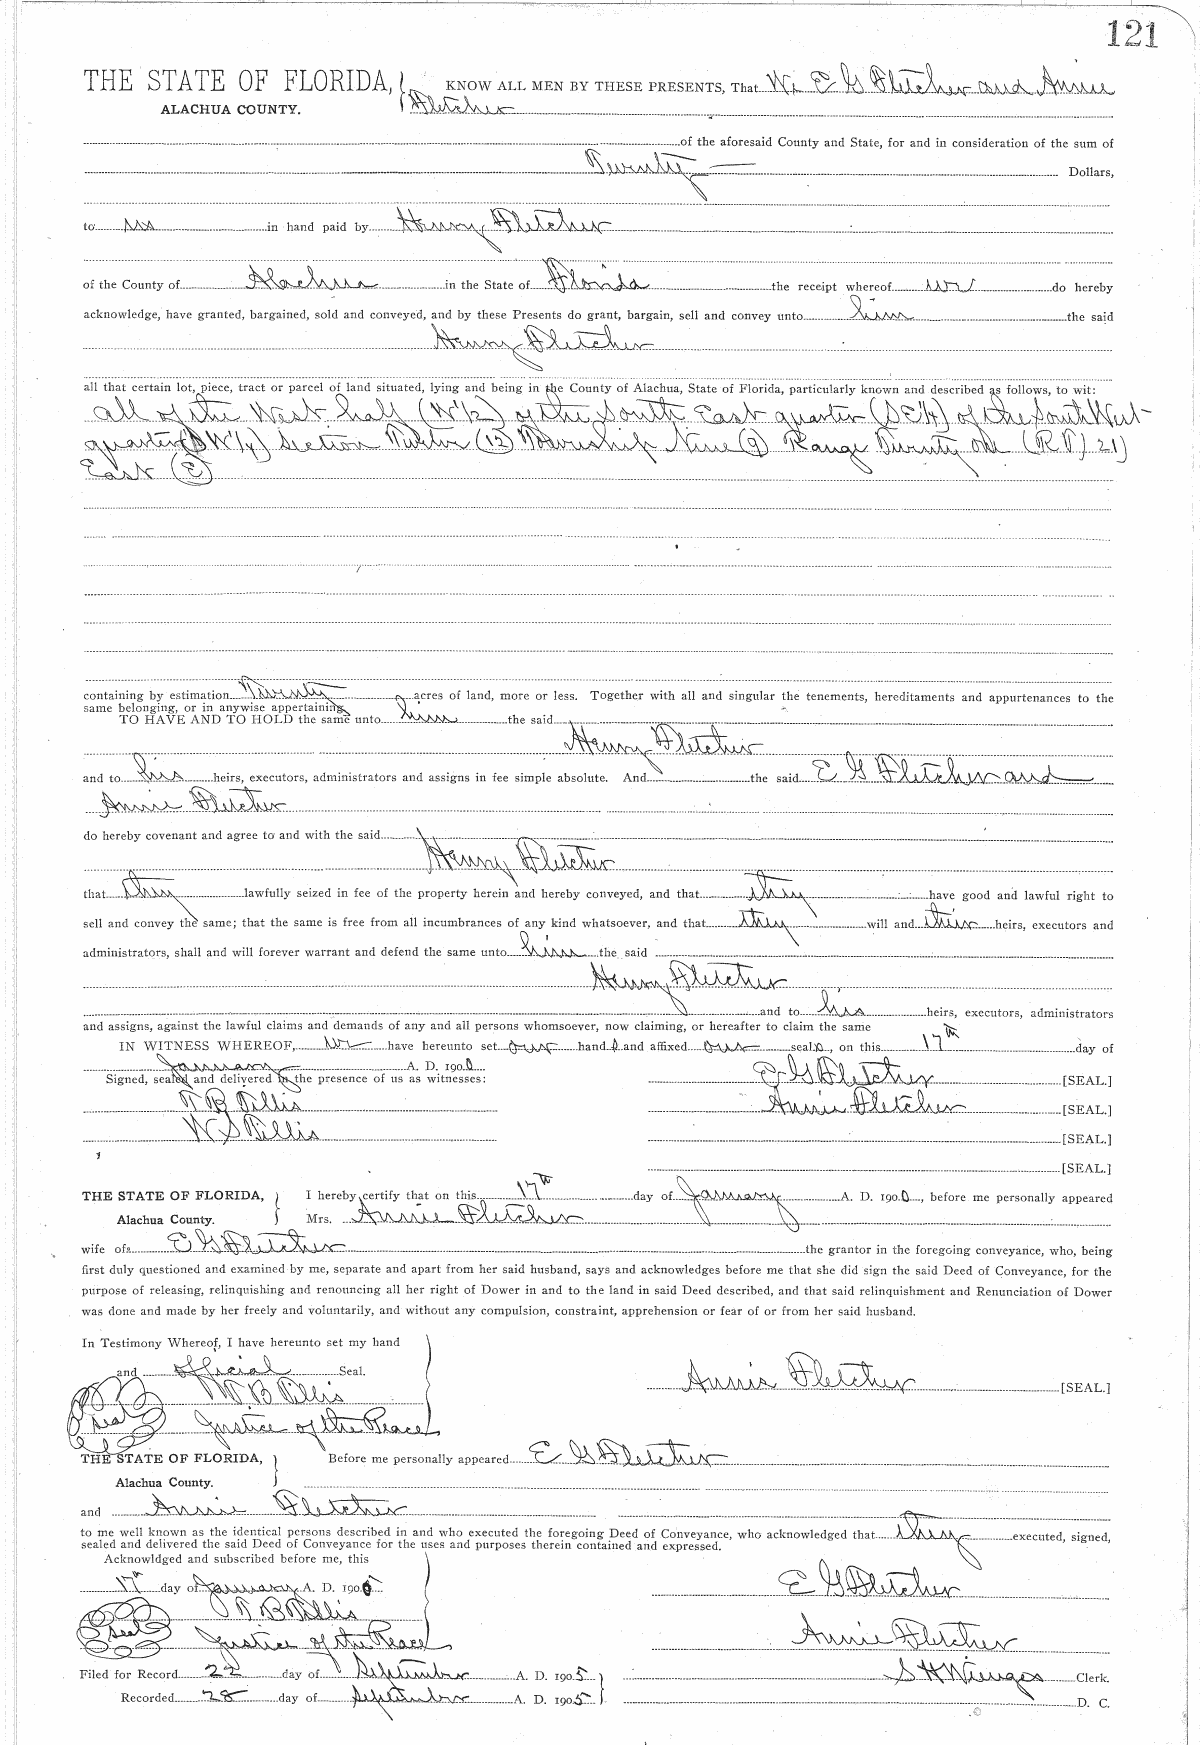 121
THE STATE OF FLORIDA, KNOW ALL MEN BY THESE PRESENTS, That We E G Fletcher and Annie
ALACHUA COUNTY. Fletcher
of the aforesaid County and State, for and in consideration of the sum of
Twenty Dollars,
to us in hand paid by Henry Fletcher
of the County of Alachua in the State of Florida the receipt whereof we do hereby
acknowledge, have granted, bargained, sold and conveyed, and by these Presents do grant, bargain, sell and convey unto him the said
Henry Fletcher
all that certain lot, piece, tract or parcel of land situated, lying and being in the County of Alachua, State of Florida, particularly known and described as follows, to wit:
all of the West half (W 1/2) of the South East quarter (SE 1/4) of the South West
quarter (SW 1/4) Section Twelve (12) Township Nine (9) Range Twenty one (R T) 21)
East (E)
containing by estimation Twenty acres of land, more or less. Together with all and singular the tenements, hereditaments and appurtenances to the
same belonging, or in anywise appertaining
TO HAVE AND TO HOLD the same unto him the said
Henry Fletcher
and to his heirs, executors, administrators and assigns in fee simple absolute. And the said E G Fletcher and
Annie Fletcher
do hereby covenant and agree to and with the said
Henry Fletcher
that they lawfully seized in fee of the property herein and hereby conveyed, and that they have good and lawful right to
sell and convey the same; that the same is free from all incumbrances of any kind whatsoever, and that they will and their heirs, executors and
administrators, shall and will forever warrant and defend the same unto him the said
Henry Fletcher
and to his heirs, executors, administrators
and assigns, against the lawful claims and demands of any and all persons whomsoever, now claiming, or hereafter to claim the same
IN WITNESS WHEREOF, we have hereunto set our hand s and affixed our seal s, on this 17th day of
January A. D. 1900
Signed, sealed and delivered in the presence of us as witnesses: E G Fletcher [SEAL.]
T B Tillis Annie Fletcher [SEAL.]
W S Tillis [SEAL.]
[SEAL.]
THE STATE OF FLORIDA, I hereby certify that on this 17th day of January A. D. 1900, before me personally appeared
Alachua County. Mrs. Annie Fletcher
wife of E G Fletcher the grantor in the foregoing conveyance, who, being
first duly questioned and examined by me, separate and apart from her said husband, says and acknowledges before me that she did sign the said Deed of Conveyance, for the
purpose of releasing, relinquishing and renouncing all her right of Dower in and to the land in said Deed described, and that said relinquishment and Renunciation of Dower
was done and made by her freely and voluntarily, and without any compulsion, constraint, apprehension or fear of or from her said husband.
In Testimony Whereof, I have hereunto set my hand
and official Seal. Annie Fletcher [SEAL.]
B Tillis
Seal Justice of the Peace
THE STATE OF FLORIDA, Before me personally appeared E G Fletcher
Alachua County.
and Annie Fletcher
to me well known as the identical persons described in and who executed the foregoing Deed of Conveyance, who acknowledged that they executed, signed,
sealed and delivered the said Deed of Conveyance for the uses and purposes therein contained and expressed.
Acknowldged and subscribed before me, this
17th day of January A. D. 190 E G Fletcher
T B Tillis
Seal Justice of the Peace Annie Fletcher
Filed for Record 22 day of September A. D. 1905 S H Wienges Clerk.
Recorded 28 day of September A. D. 1905 D. C.